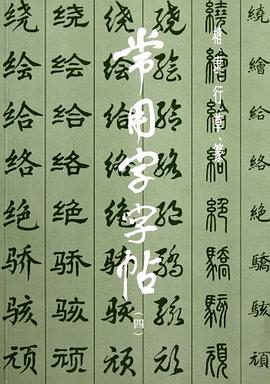 常用字字帖
（四）
楷隶行草、篆
繞繪給絡絕驕駭頑
繞繪給絡絕驕駭頑
绕绘给络绝骄骇顽
绕绘给络绝骄骇顽
绕绘给络绝骄骇顽
绕绘给络绝骄骇顽